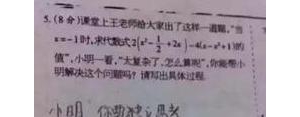 5. (8分)课堂上王老师给大家出了这样一道题,"当
x=-1时,求代数式2(x²-1/2+2x)-4(x-x²+1)的
值",小明一看,"太复杂了,怎么算呢",你能帮小
明解决这个问题吗?请写出具体过程.
小明 你要独立思考